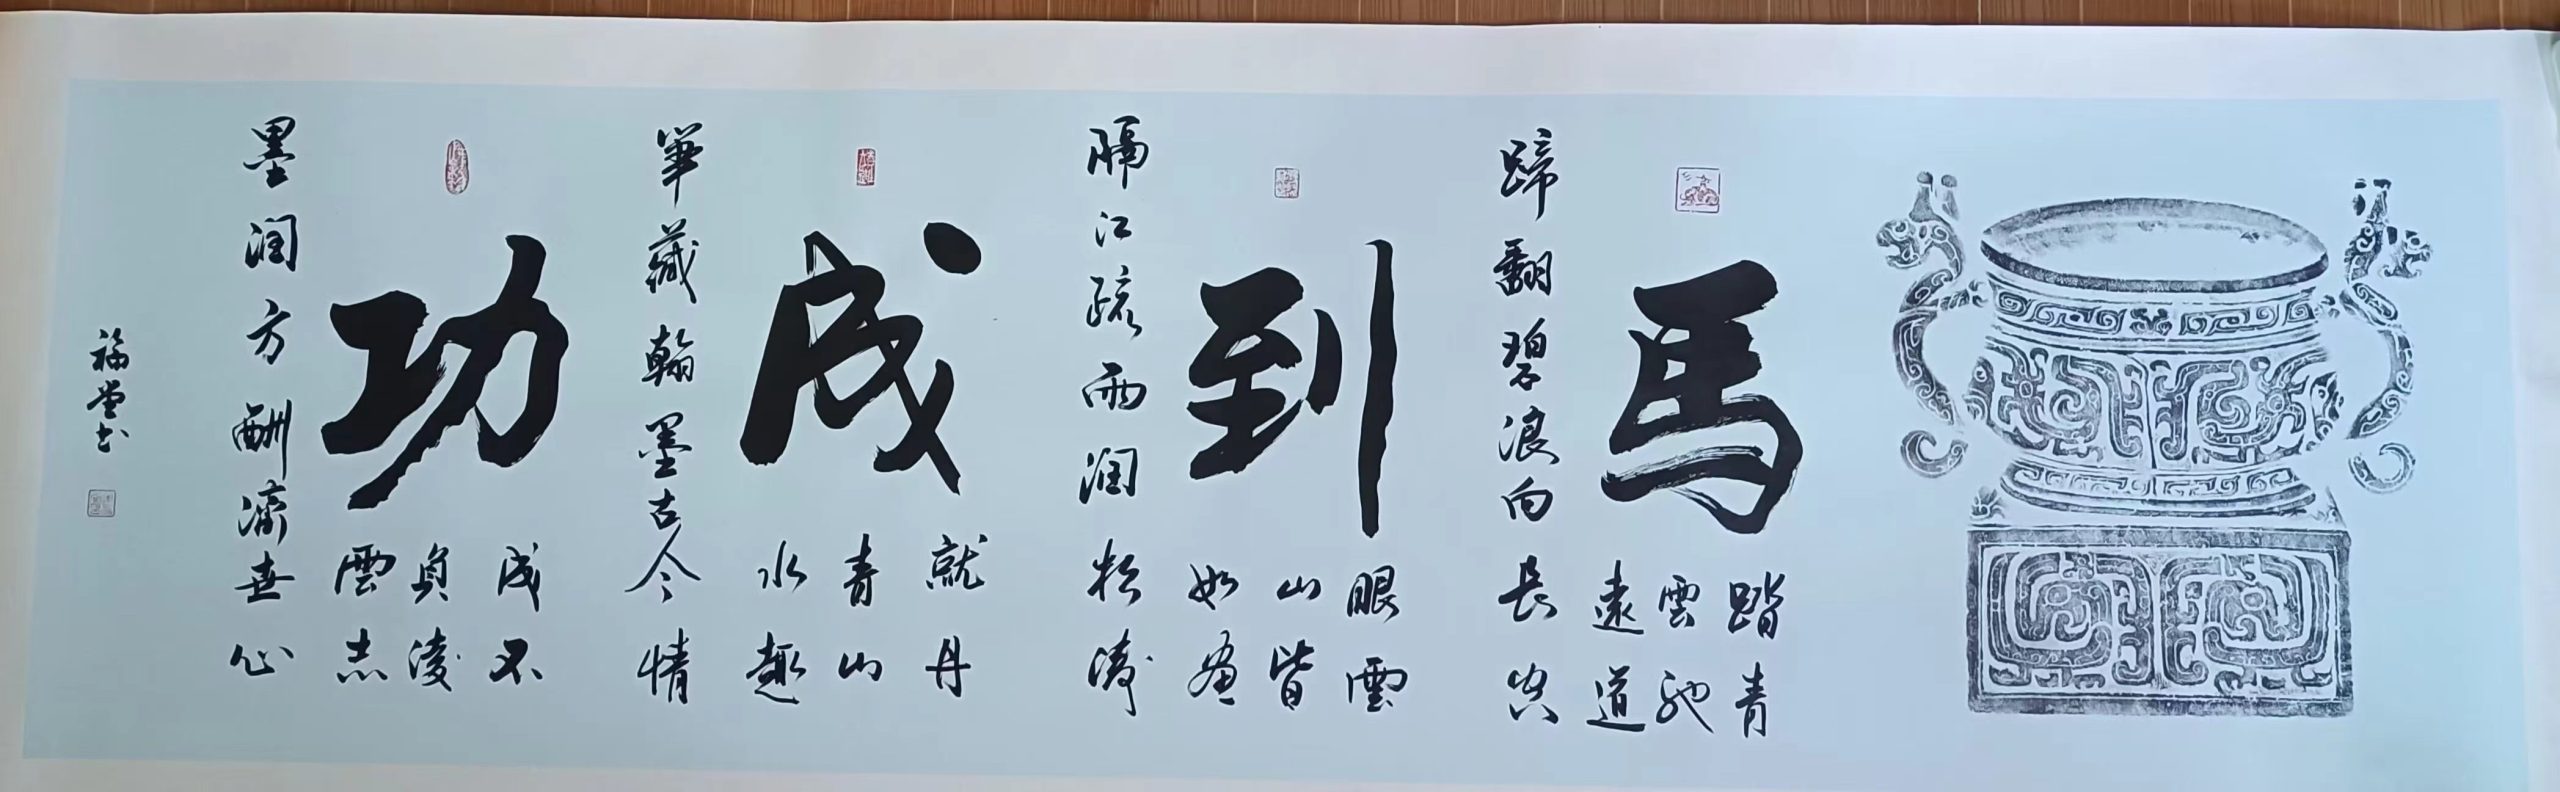 馬
踏青
雲馳
遠道
蹄翻碧浪向長空
到
眼雲
山皆
如畫
隔江疏雨潤松濤
成
就丹
青山
水趣
筆藏翰墨古今情
功
成不
負凌
雲志
墨潤方酬濟世心
福堂书